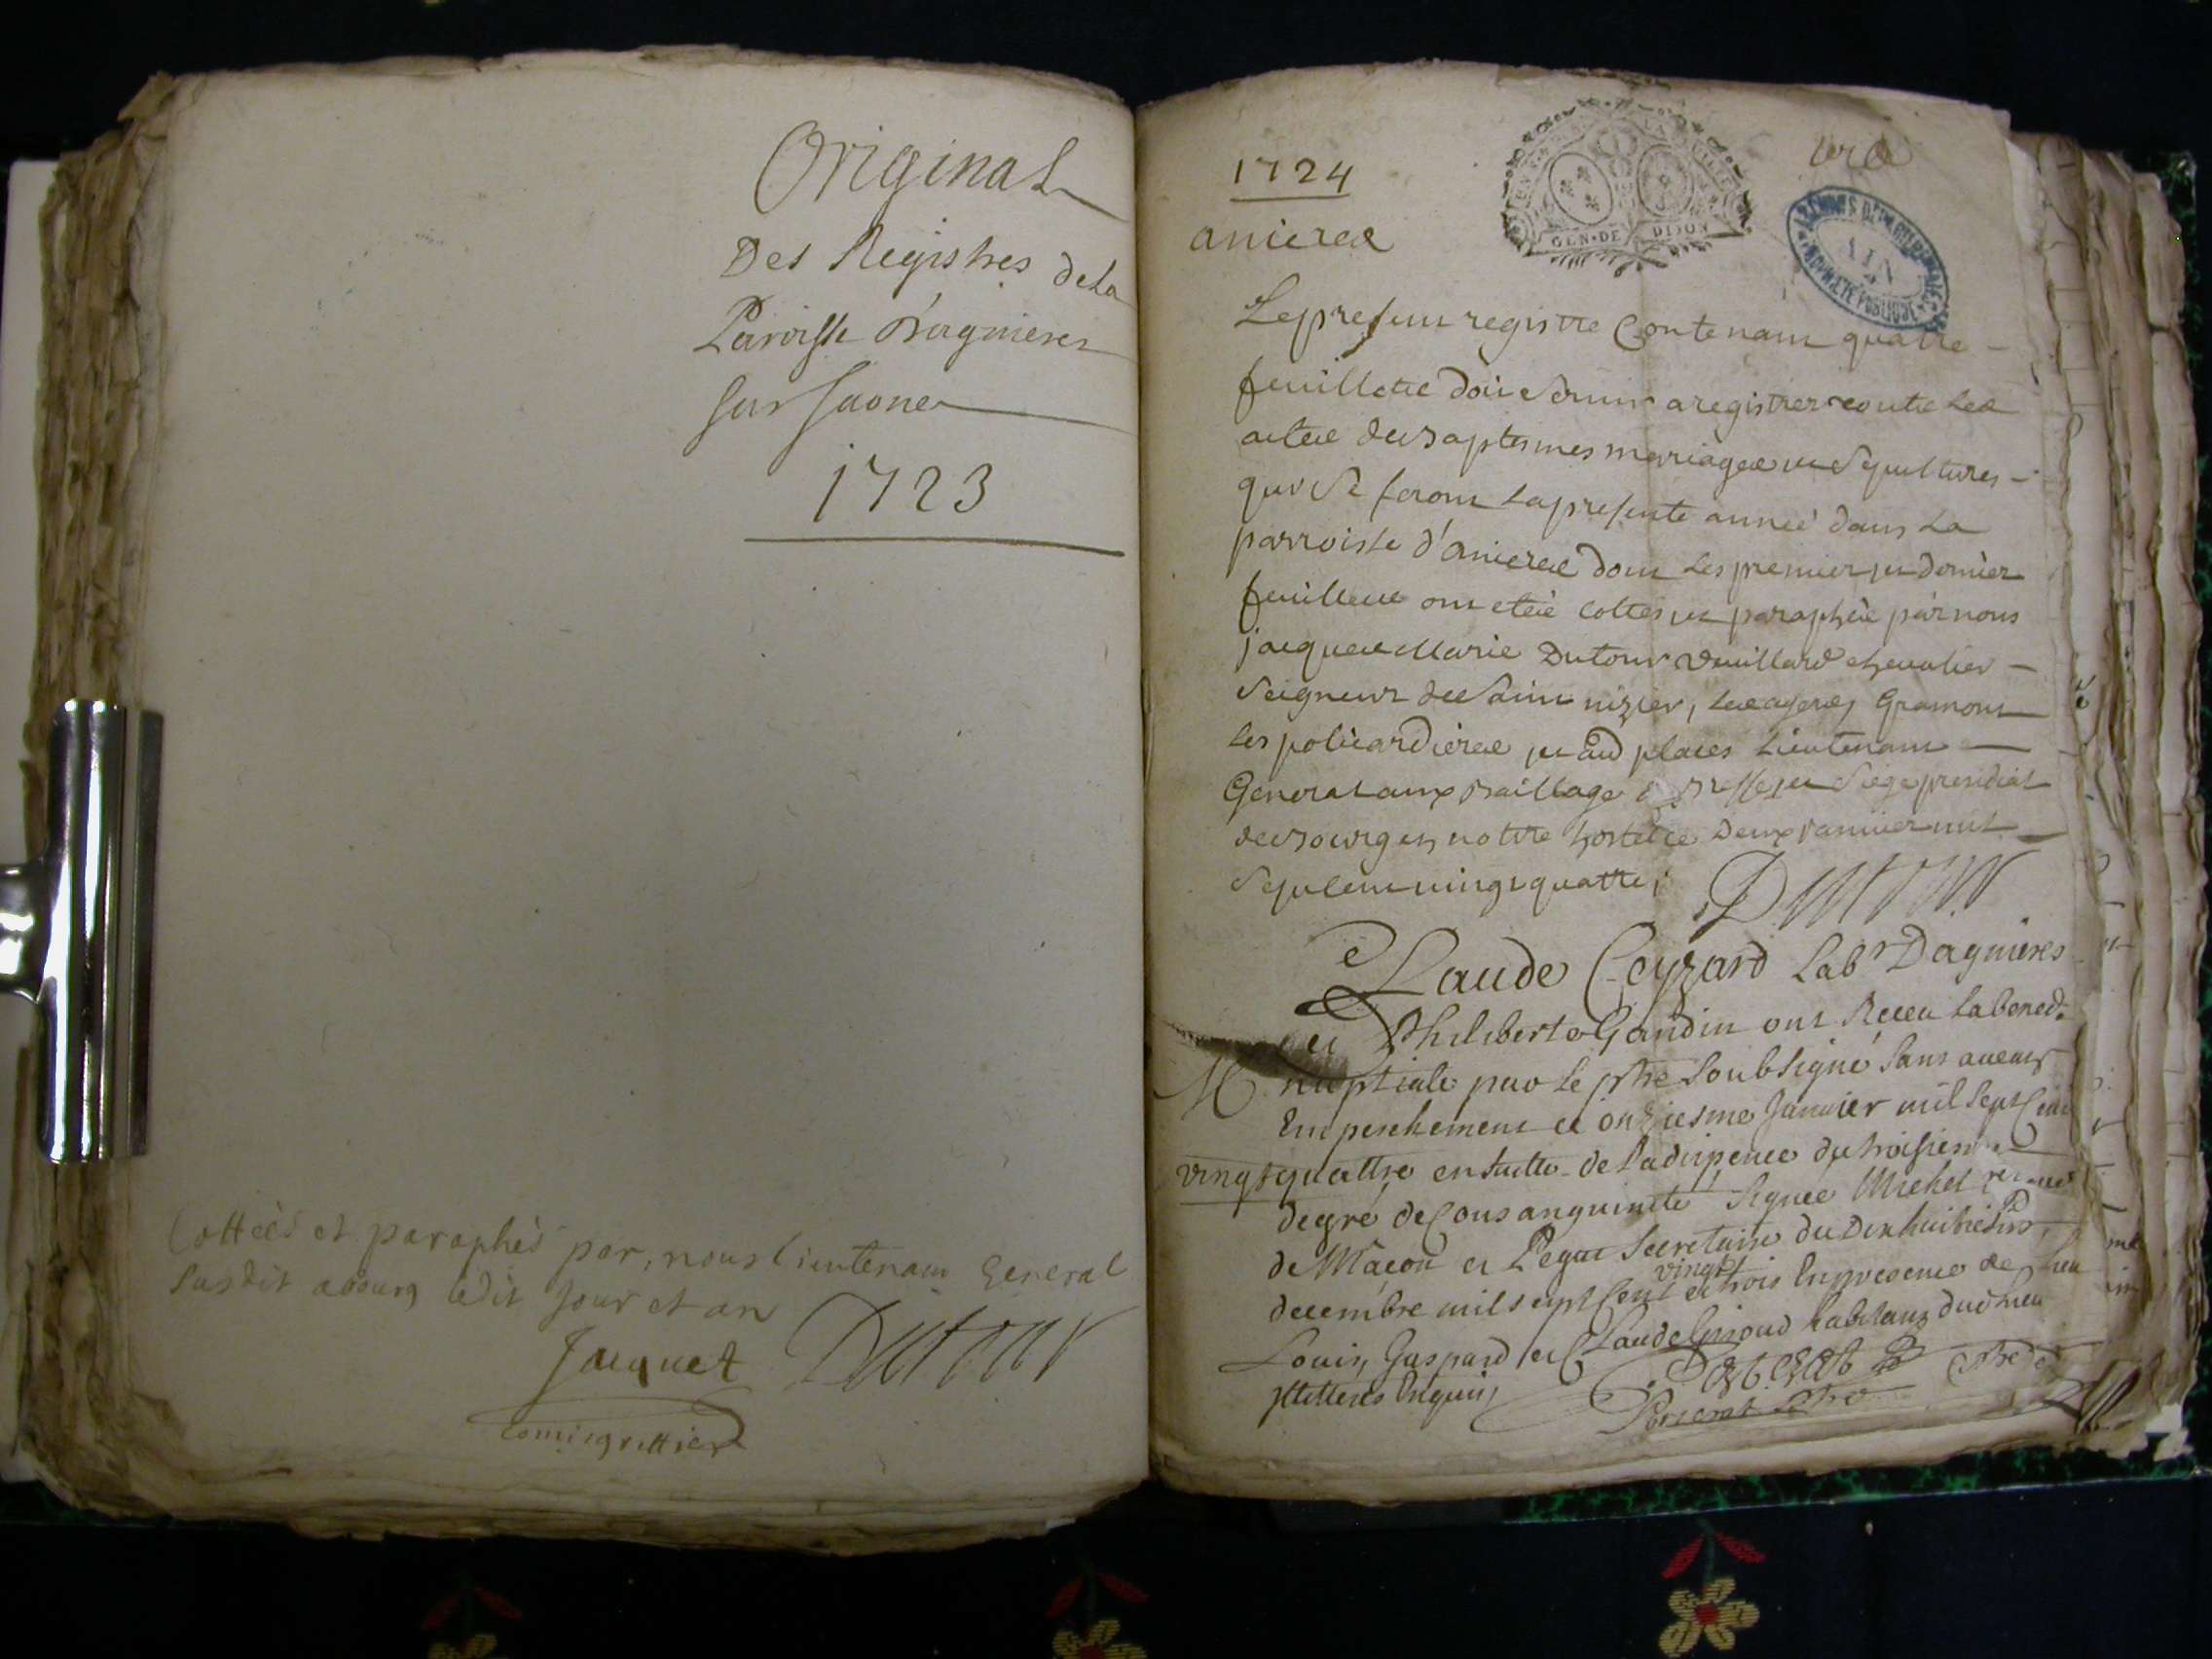 Original
Des Registres de La
Paroisse D'agnieres
sur Saone
1723
Cottéés et paraphés par, nous Lieutenam General
Susdit abourg ledit Jour et an
Jacquet Dutour
Commis greffier
1724
anieres
GEN·DE DIJON
AIN
Le present registre Contenant quatre
feuilletz doit servir a registrer toutte Les
actes de Baptesmes mariages et Sepultures
qui Se feront La presente anneé dans La
parroisse d'anieres dont Les premier et dernier
feuilletz ont etéé cottes et paraphée par nous
jacques Marie Dutour Vuillard chevalier
Seigneur de Saint nizier, Gramont
Les policardieres et aud places Lieutenant
General aux Baillage de Bresse et Siege presidial
de Bourg en notre hostel ce Deux Janvier mil
Sept cent vingt quatre;
Dutour
Claude Ceyzard Labr Dagnieres
et Philiberte Gandin ont Receu La bened.
M nuptiale par Le ptre Soubsigné Sans aucun
Empeschement ce onziesme Janvier mil Sept Cent
vingt quattre en Suitte de La dispence du troisiem.
degré de Consanguinité Signée Michel
de Mâcon et Legat Secretaire du Dix huictiesme
decembre mil sept Cent vingt et trois En presence de
Louis Gaspard et Claude habitans dud Lieu
jllitterés Enquis